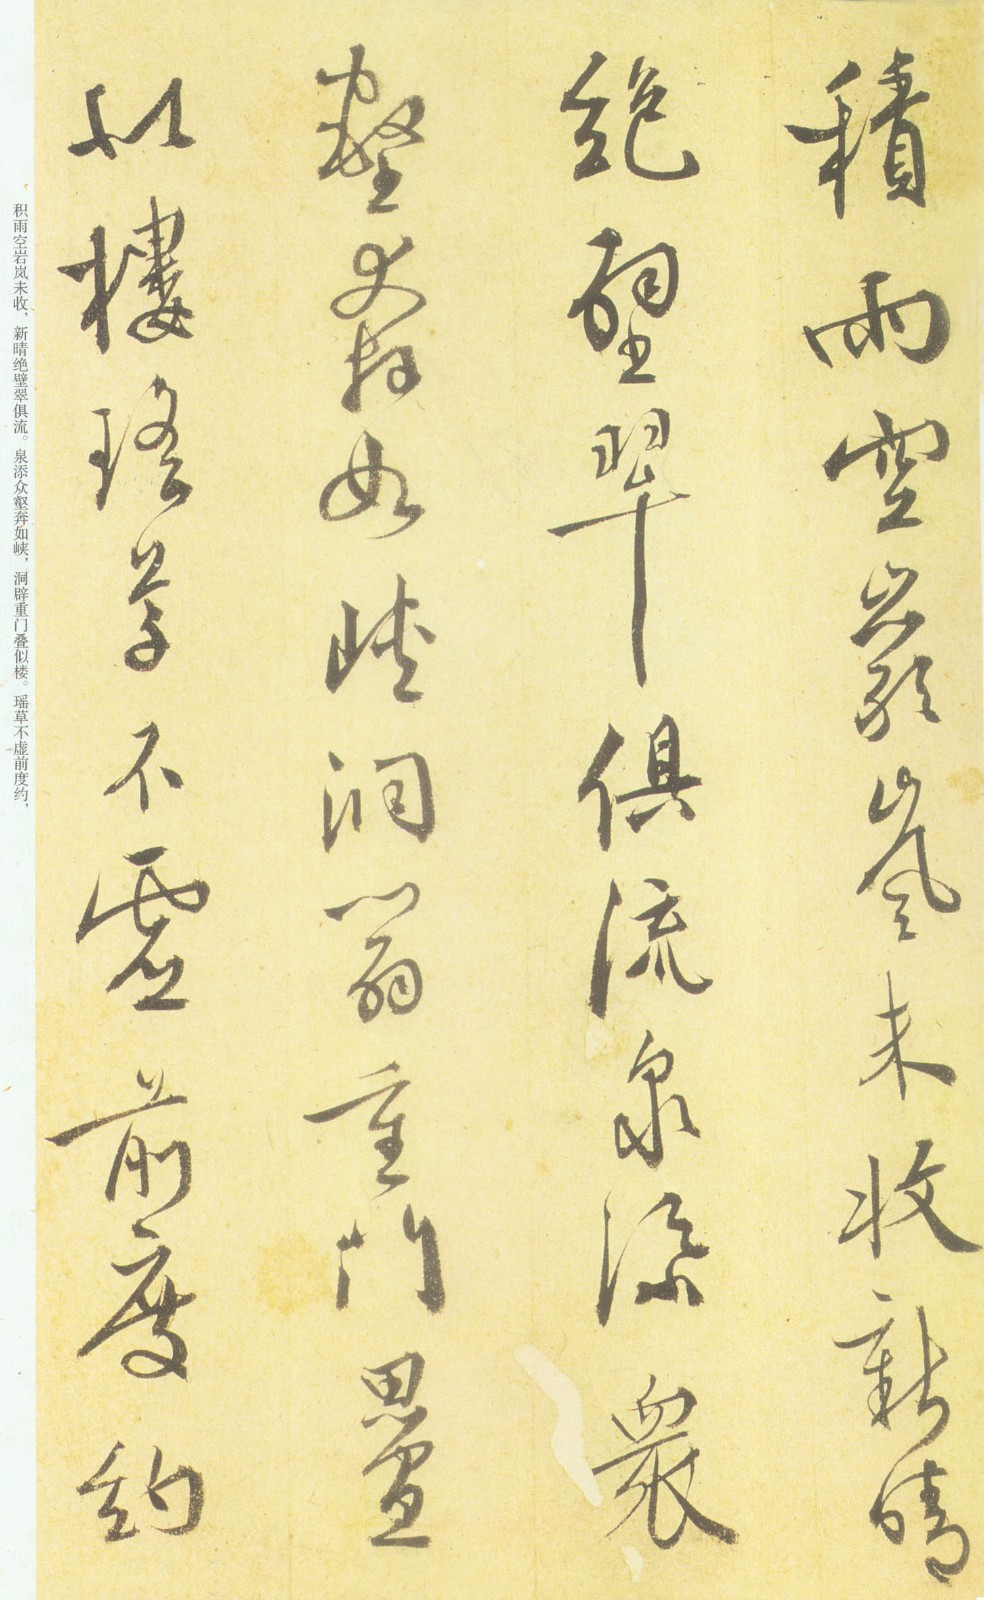 積雨空巖嵐未收新晴
絶壁翠俱流泉添衆
壑奔如峽洞重門疊
似樓瑶草不虚前度約
积雨空岩岚未收，新晴绝壁翠俱流。泉添众壑奔如峡，洞辟重门叠似楼。瑶草不虚前度约，